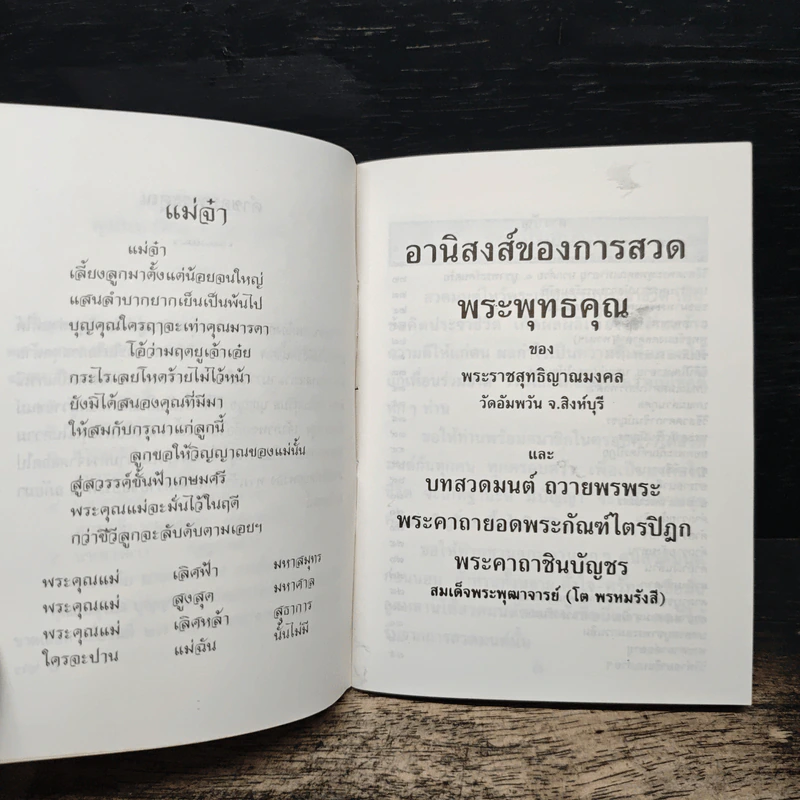 แม่จ๋า
แม่จ๋า
เลี้ยงลูกมาตั้งแต่น้อยจนใหญ่
แสนลำบากยากเย็นเป็นพ้นไป
บุญคุณใครฤๅจะเท่าคุณมารดา
โอ้ว่ามฤตยูเจ้าเอ๋ย
กระไรเลยโหดร้ายไม่ไว้หน้า
ยังมิได้สนองคุณที่มีมา
ให้สมกับกรุณาแก่ลูกนี้
ลูกขอให้วิญญาณของแม่นั้น
สู่สวรรค์ชั้นฟ้าเกษมศรี
พระคุณแม่จะมั่นไว้ในฤดี
กว่าชีวีลูกจะลับดับตามเอยฯ
พระคุณแม่ เลิศฟ้า มหาสมุทร
พระคุณแม่ สูงสุด มหาศาล
พระคุณแม่ เลิศหล้า สุธาการ
ใครจะปาน แม่ฉัน นั้นไม่มี
อานิสงส์ของการสวด
พระพุทธคุณ
ของ
พระราชสุทธิญาณมงคล
วัดอัมพวัน จ.สิงห์บุรี
และ
บทสวดมนต์ ถวายพรพระ
พระคาถายอดพระกัณฑ์ไตรปิฎก
พระคาถาชินบัญชร
สมเด็จพระพุฒาจารย์ (โต พรหมรังสี)